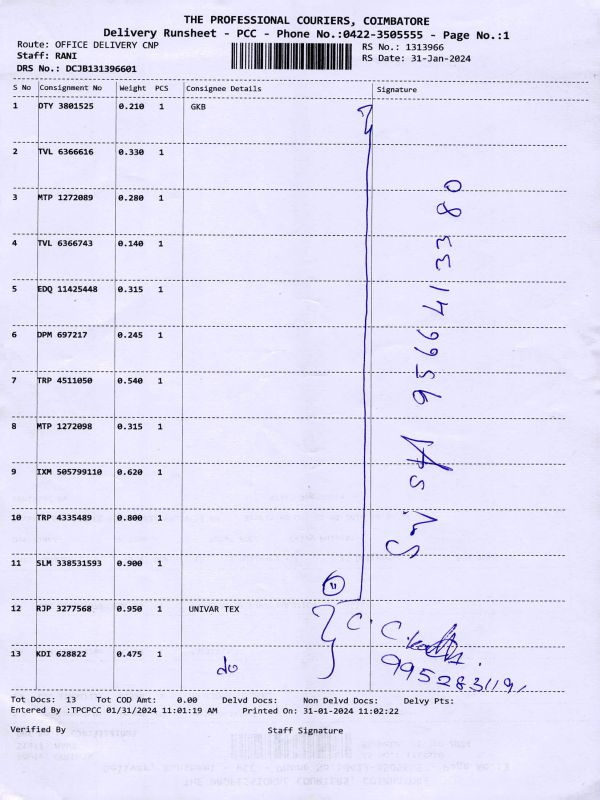 THE PROFESSIONAL COURIERS, COIMBATORE
Delivery Runsheet - PCC - Phone No.:0422-3505555 - Page No.:1
Route: OFFICE DELIVERY CNP RS No.: 1313966
Staff: RANI RS Date: 31-Jan-2024
DRS No.: DCJB131396601
S No Consignment No Weight PCS Consignee Details Signature
1 DTY 3801525 0.210 1 GKB
2 TVL 6366616 0.330 1
3 MTP 1272089 0.280 1
4 TVL 6366743 0.140 1
5 EDQ 11425448 0.315 1
6 DPM 697217 0.245 1
7 TRP 4511050 0.540 1
8 MTP 1272098 0.315 1
9 IXM 505799110 0.620 1
10 TRP 4335489 0.800 1
11 SLM 338531593 0.900 1
9566413380
11
12 RJP 3277568 0.950 1 UNIVAR TEX C.
13 KDI 628822 0.475 1 do
9952831191
Tot Docs: 13 Tot COD Amt: 0.00 Delvd Docs: Non Delvd Docs: Delvy Pts:
Entered By :TPCPCC 01/31/2024 11:01:19 AM Printed On: 31-01-2024 11:02:22
Verified By Staff Signature